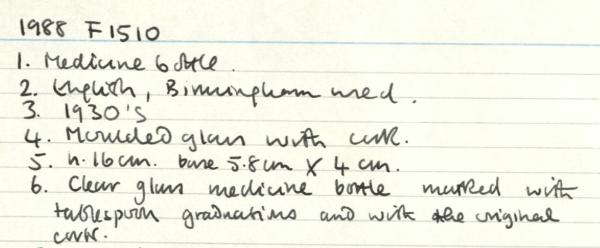 1988 F1510
1. Medicine bottle.
2. English, Birmingham used.
3. 1930's
4. Moulded glass with cork.
5. h.16cm. base 5.8cm X 4cm.
6. Clear glass medicine bottle marked with
tablespoon graduations and with the original
cork.